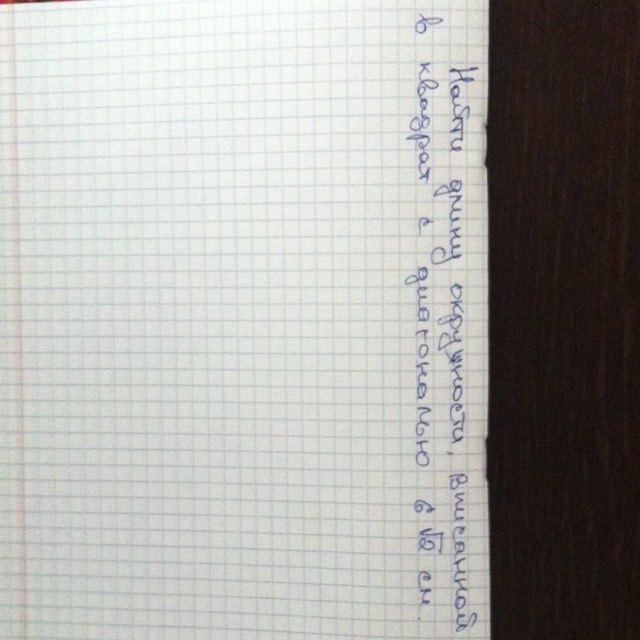 Найти длину окружности, вписанной
в квадрат с диагональю 6√2 см.